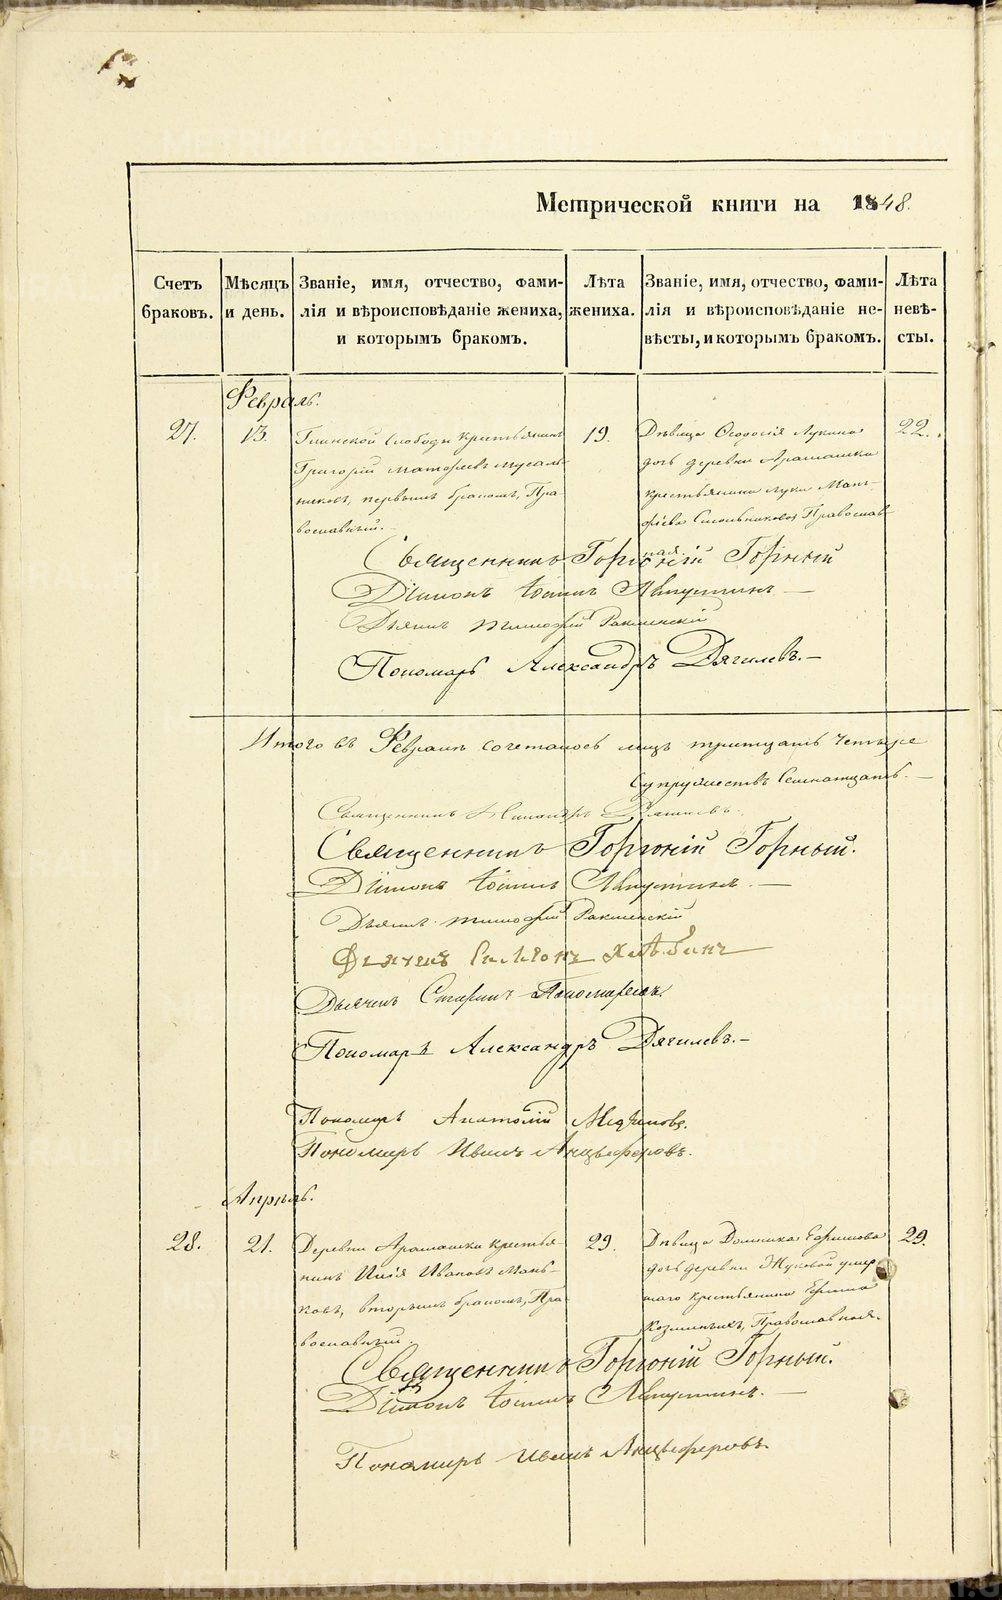 Метрической книги на 1848.
Счетъ браковъ.
Мѣсяцъ и день.
Званіе, имя, отчество, фами-
лія и вѣроисповѣданіе жениха,
и которымъ бракомъ.
Лѣта
жениха.
Званіе, имя, отчество, фами-
лія и вѣроисповѣданіе не-
вѣсты, и которымъ бракомъ.
Лѣта
невѣ-
сты.
Февраль.
27.
13.
Глинской слободы крестьянинъ
Григорій Матѳеевъ Мусаль-
никовъ, первымъ бракомъ, Пра-
вославный.
19.
Дѣвица Ѳеодосія Лукина
дочь деревни Арамашки
крестьянина Луки
Православ-
ная.
22.
Священникъ Горгоній Горный
Діаконъ Іоаннъ Августинъ
Дьячекъ Тимофей
Пономарь Александръ Дягилевъ.
Итого въ Февралѣ сочеталось лицъ тритцать четыре
супружествъ семнатцать.
Священникъ
Священникъ Горгоній Горный.
Діаконъ Іоаннъ Августинъ.
Дьячекъ Тимофей
Дьячекъ Филимонъ Хлѣбинъ
Дьячекъ Стефанъ Пономаревъ.
Пономарь Александръ Дягилевъ.
Пономарь Анатолій
Пономарь Иванъ Анцыферовъ.
Апрѣль.
28.
21.
Деревни Арамашки крестья-
нинъ Илія Ивановъ Мань-
ковъ, вторымъ бракомъ, Пра-
вославный.
29.
Дѣвица Домника Ефимова
дочь деревни Жуковой умер-
шаго крестьянина Ефима
Козминыхъ, Православная.
29.
Священникъ Горгоній Горный.
Діаконъ Іоаннъ Августинъ.
Пономарь Иванъ Анцыферовъ.
METRIKI.GASO-URAL.RU